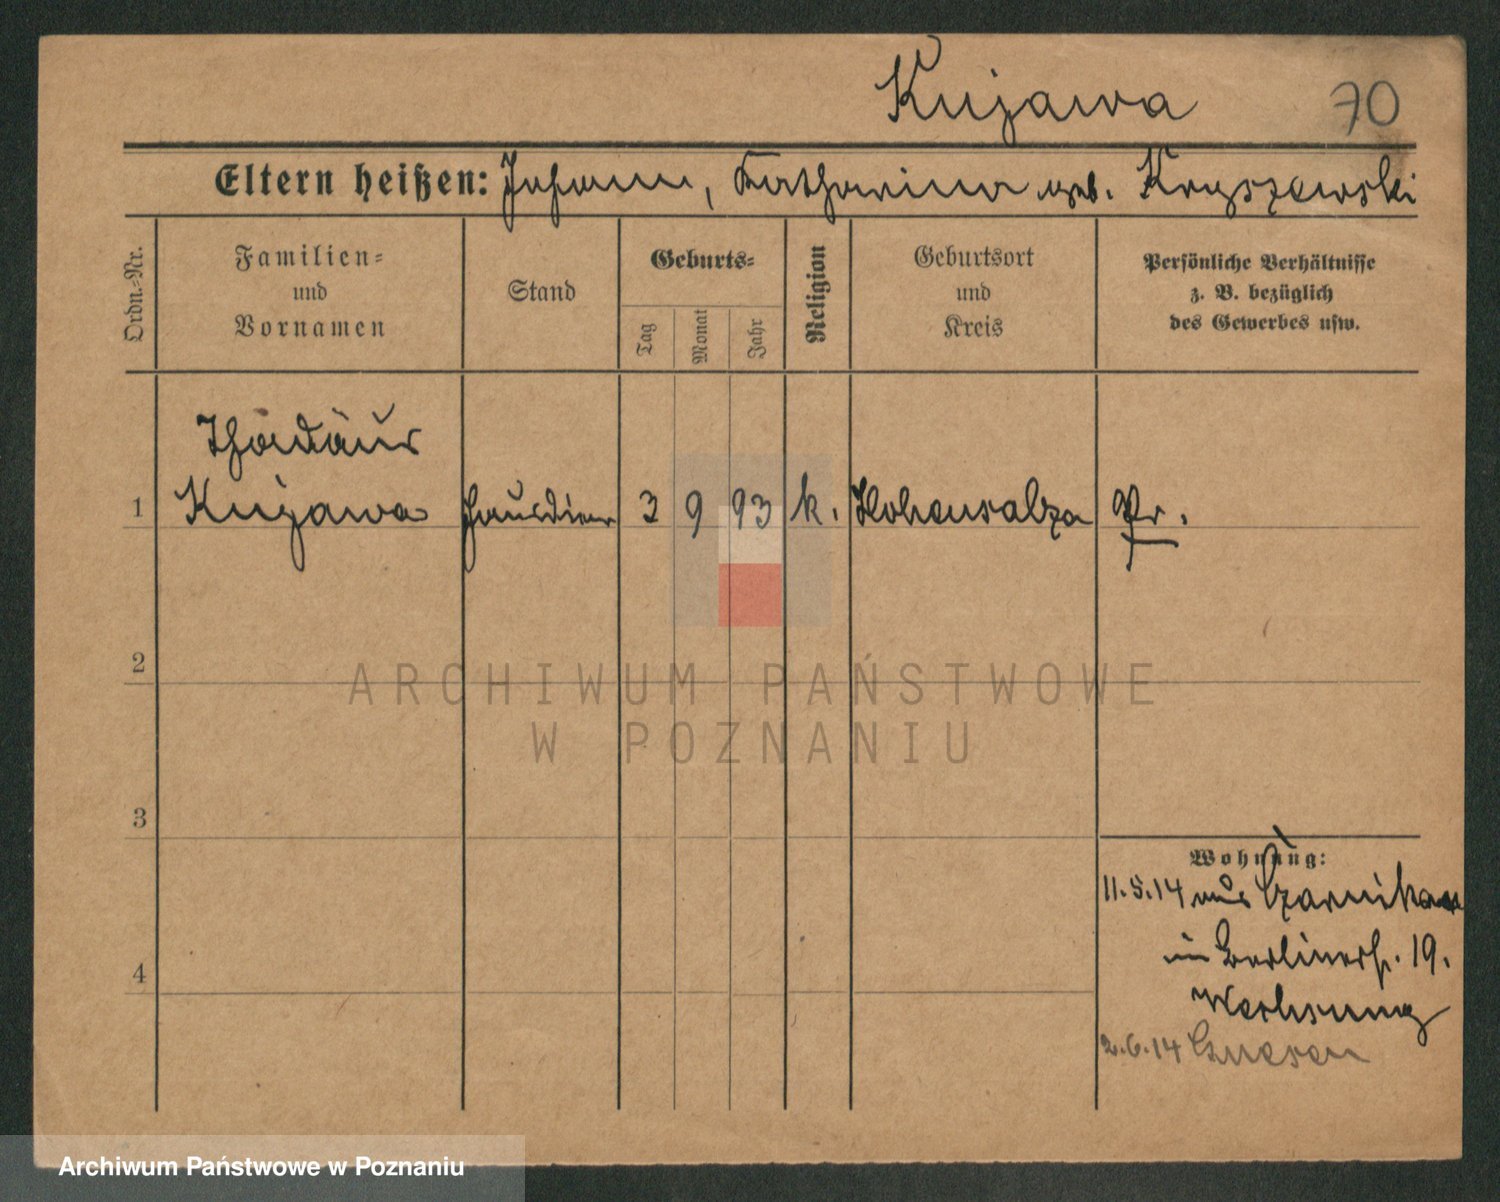 Kujawa 70
Eltern heißen: Johann, Katharina geb. Kryszewski
Ordn.-Nr.
Familien-
und
Vornamen
Stand
Geburts-
Tag
Monat
Jahr
Religion
Geburtsort
und
Kreis
Persönliche Verhältnisse
z. B. bezüglich
des Gewerbes usw.
Thadäus
1 Kujawa Hausdiener 3 9 93 k. Hohensalza Pr.
2
3
4
Wohnung:
11.5.14 aus Czarnikau
in Berlinerstr. 19.
2.6.14 Gnesen
ARCHIWUM PAŃSTWOWE
W POZNANIU
Archiwum Państwowe w Poznaniu